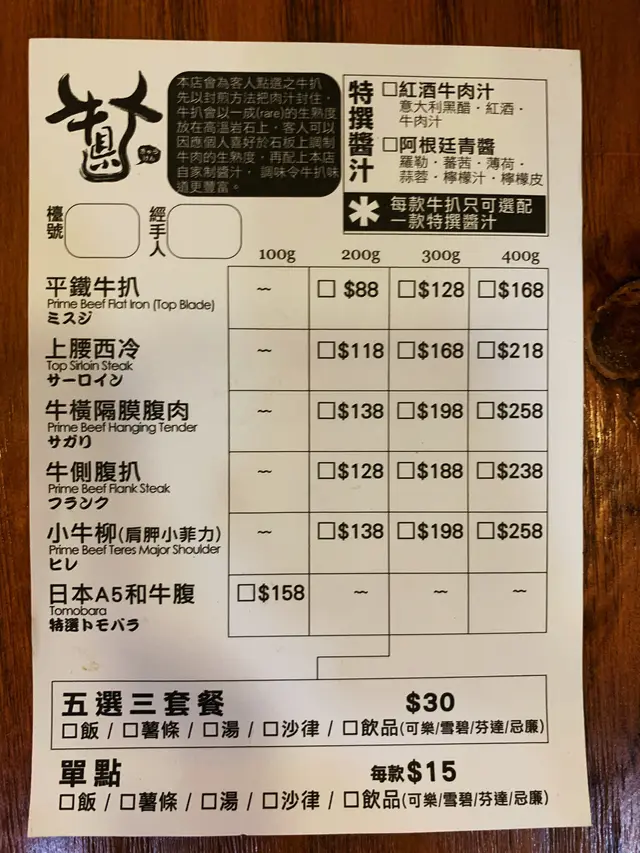 本店會為客人點選之牛扒
先以封煎方法把肉汁封住，
牛扒會以一成(rare)的生熟度
放在高溫岩石上，客人可以
因應個人喜好於石板上調制
牛肉的生熟度，再配上本店
自家制醬汁， 調味令牛扒味
道更豐富。
特撰醬汁
□紅酒牛肉汁
意大利黑醋・紅酒・
牛肉汁
□阿根廷青醬
羅勒・蕃茜・薄荷・
蒜蓉・檸檬汁・檸檬皮
* 每款牛扒只可選配
一款特撰醬汁
檯號
經手人
100g 200g 300g 400g
平鐵牛扒 ~ □ $88 □$128 □$168
Prime Beef Flat Iron (Top Blade)
ミスジ
上腰西冷 ~ □$118 □$168 □$218
Top Sirloin Steak
サーロイン
牛橫隔膜腹肉 ~ □$138 □$198 □$258
Prime Beef Hanging Tender
サガリ
牛側腹扒 ~ □$128 □$188 □$238
Prime Beef Flank Steak
フランク
小牛柳(肩胛小菲力) ~ □$138 □$198 □$258
Prime Beef Teres Major Shoulder
ヒレ
日本A5和牛腹 □$158 ~ ~ ~
Tomobara
特選トモバラ
五選三套餐 $30
□飯 / □薯條 / □湯 / □沙律 / □飲品(可樂/雪碧/芬達/忌廉)
單點 每款$15
□飯 / □薯條 / □湯 / □沙律 / □飲品(可樂/雪碧/芬達/忌廉)